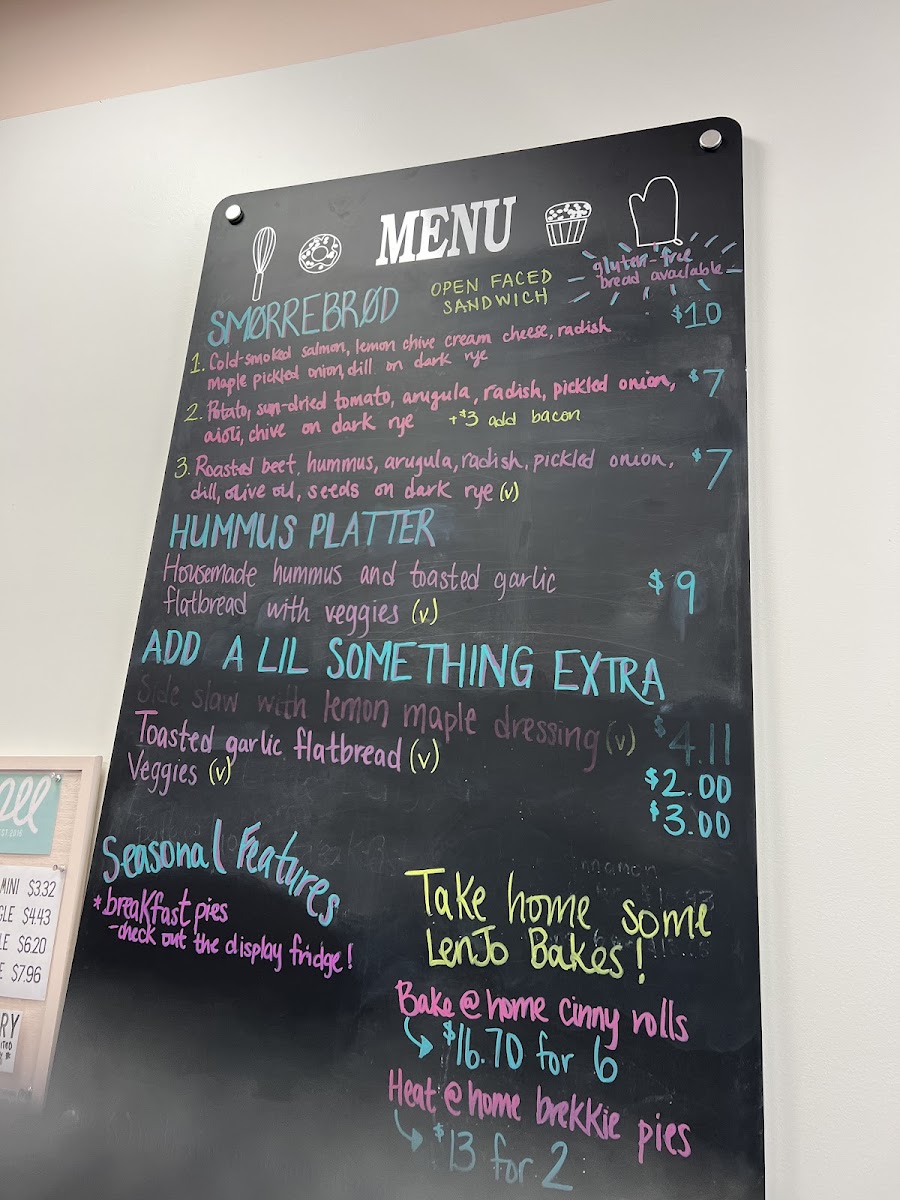 MENU
gluten-free
bread available
SMØRREBRØD
OPEN FACED
SANDWICH
1. Cold-smoked salmon, lemon chive cream cheese, radish $10
maple pickled onion, dill on dark rye
2. Potato, sun-dried tomato, arugula, radish, pickled onion, $7
aioli, chive on dark rye +$3 add bacon
3. Roasted beet, hummus, arugula, radish, pickled onion, $7
dill, olive oil, seeds on dark rye (v)
HUMMUS PLATTER
Housemade hummus and toasted garlic $9
flatbread with veggies (v)
ADD A LIL SOMETHING EXTRA
Side slaw with lemon maple dressing (v) $4.11
Toasted garlic flatbread (v) $2.00
Veggies (v) $3.00
Seasonal Features
*breakfast pies
-check out the display fridge!
Take home some
LenJo Bakes!
Bake @ home cinny rolls
$16.70 for 6
Heat @ home brekkie pies
$13 for 2
EST 2016
MINI $3.32
$4.43
$6.20
$7.96